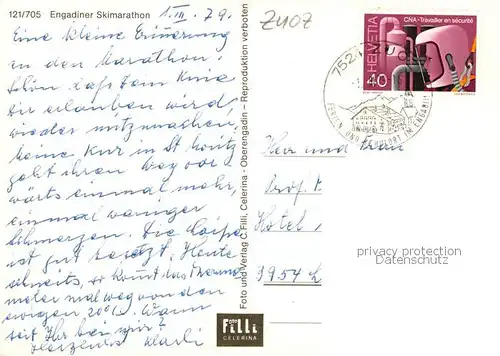 121/705 Engadiner Skimarathon
1. III. 79.
Eine kleine Erinnerung
an den Marathon.
Schön, daß dem Knie
dir erlauben wird,
wieder mitzumachen.
Meine Kur in St. Moritz
geht ihren Weg vor-
wärts einmal mehr,
einmal weniger
Schmerzen. Die
ist gut besetzt. Heute
schneits, so kommt das Thermo-
meter mal weg von den
ewigen 20°C. Wann
seid Ihr bei
Herzlichst
Foto und Verlag C. Filli, Celerina - Oberengadin - Reproduktion verboten
Foto
Filli
CELERINA
Zuoz
HELVETIA
CNA - Travailler en sécurité
40
752
FERIEN UND
IM ENGADIN
Herr und Frau
Prof.
Hotel
3954 L
privacy protection
Datenschutz